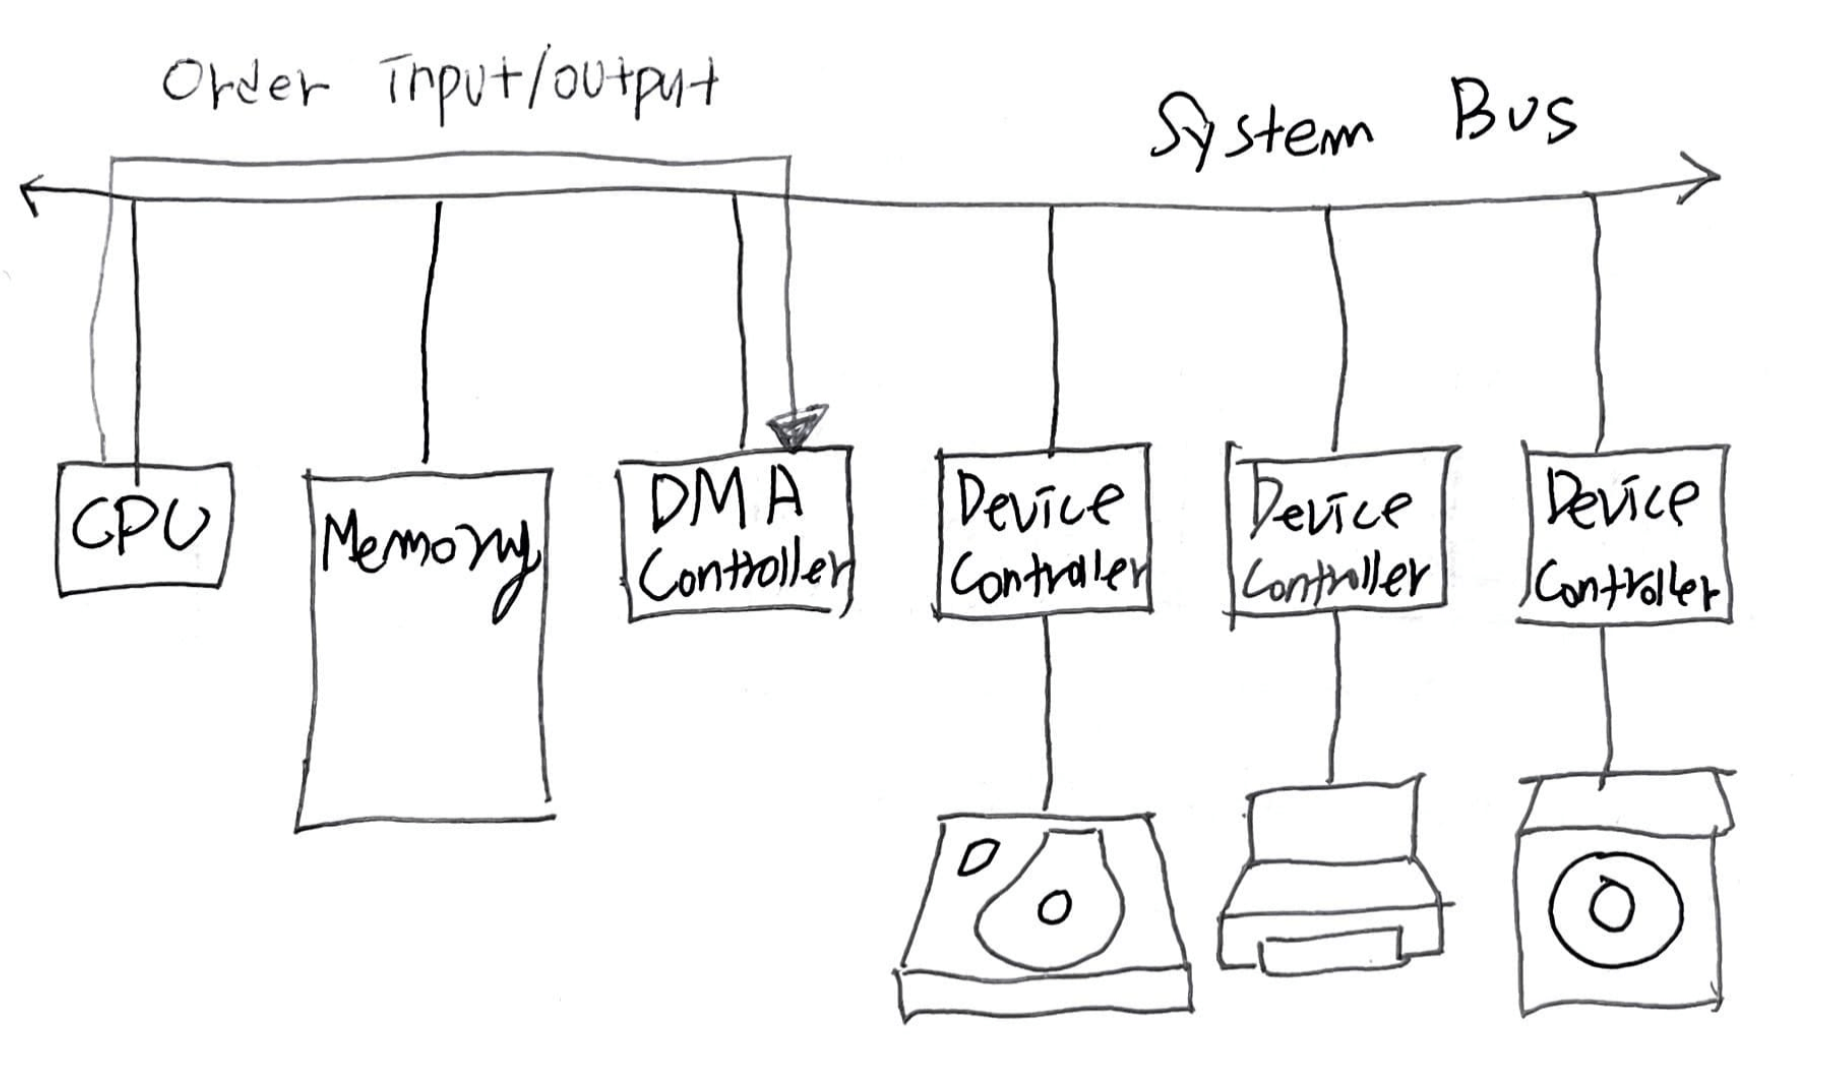 Order Input/output
System Bus
CPU
Memory
DMA
Controller
Device
Controller
Device
Controller
Device
Controller